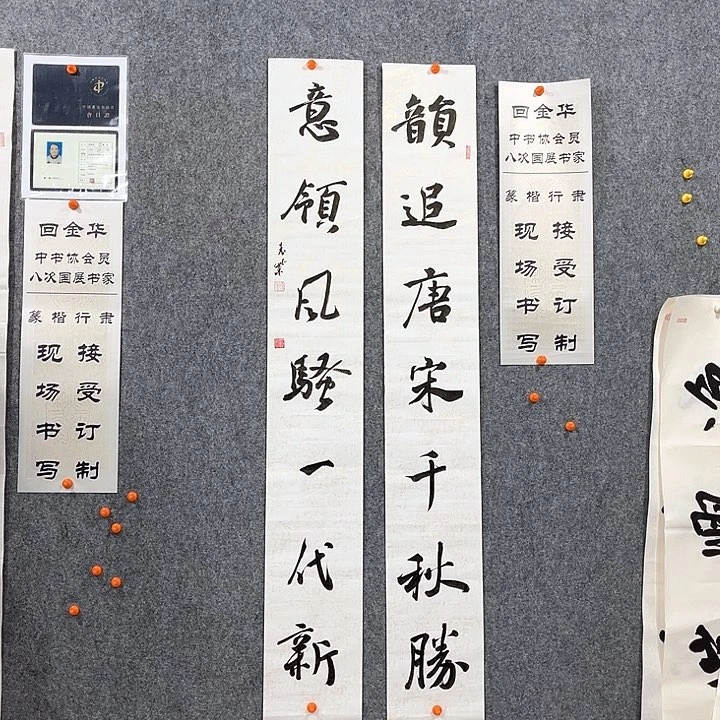 会员证
回金华
中书协会员
八次国展书家
篆楷行隶
现场书写
接受订制
韻追唐宋千秋勝
意領风騷一代新
回金华
中书协会员
八次国展书家
篆楷行隶
现场书写
接受订制